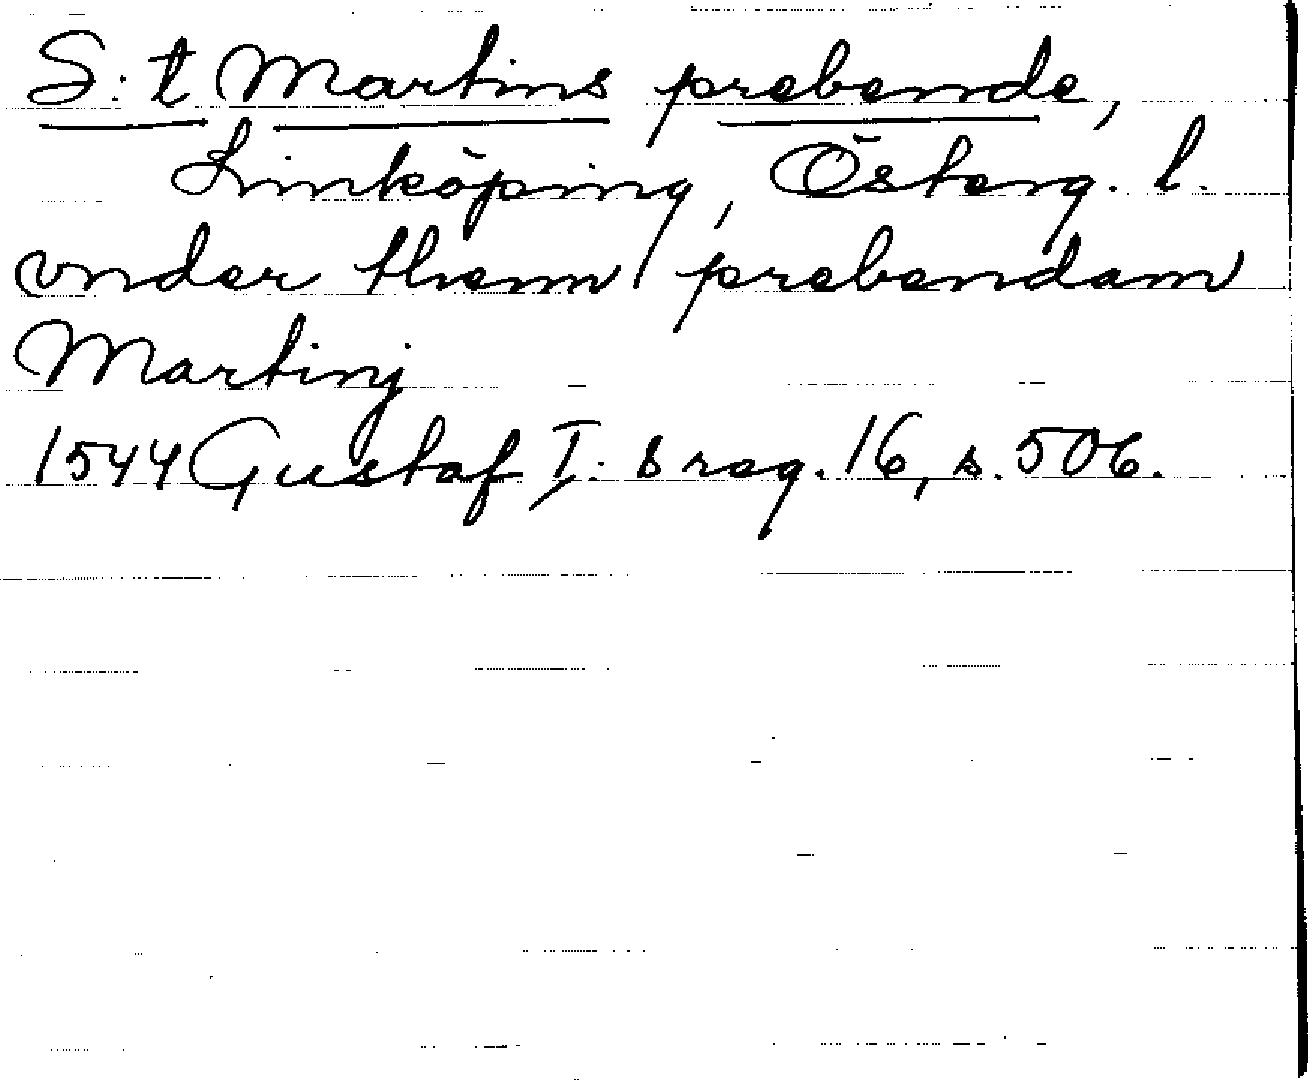 S:t Martins prebende,
Linköping, Österg. l.
vnder them prebendam
Martinj
1544 Gustaf I:s reg. 16, s. 506.